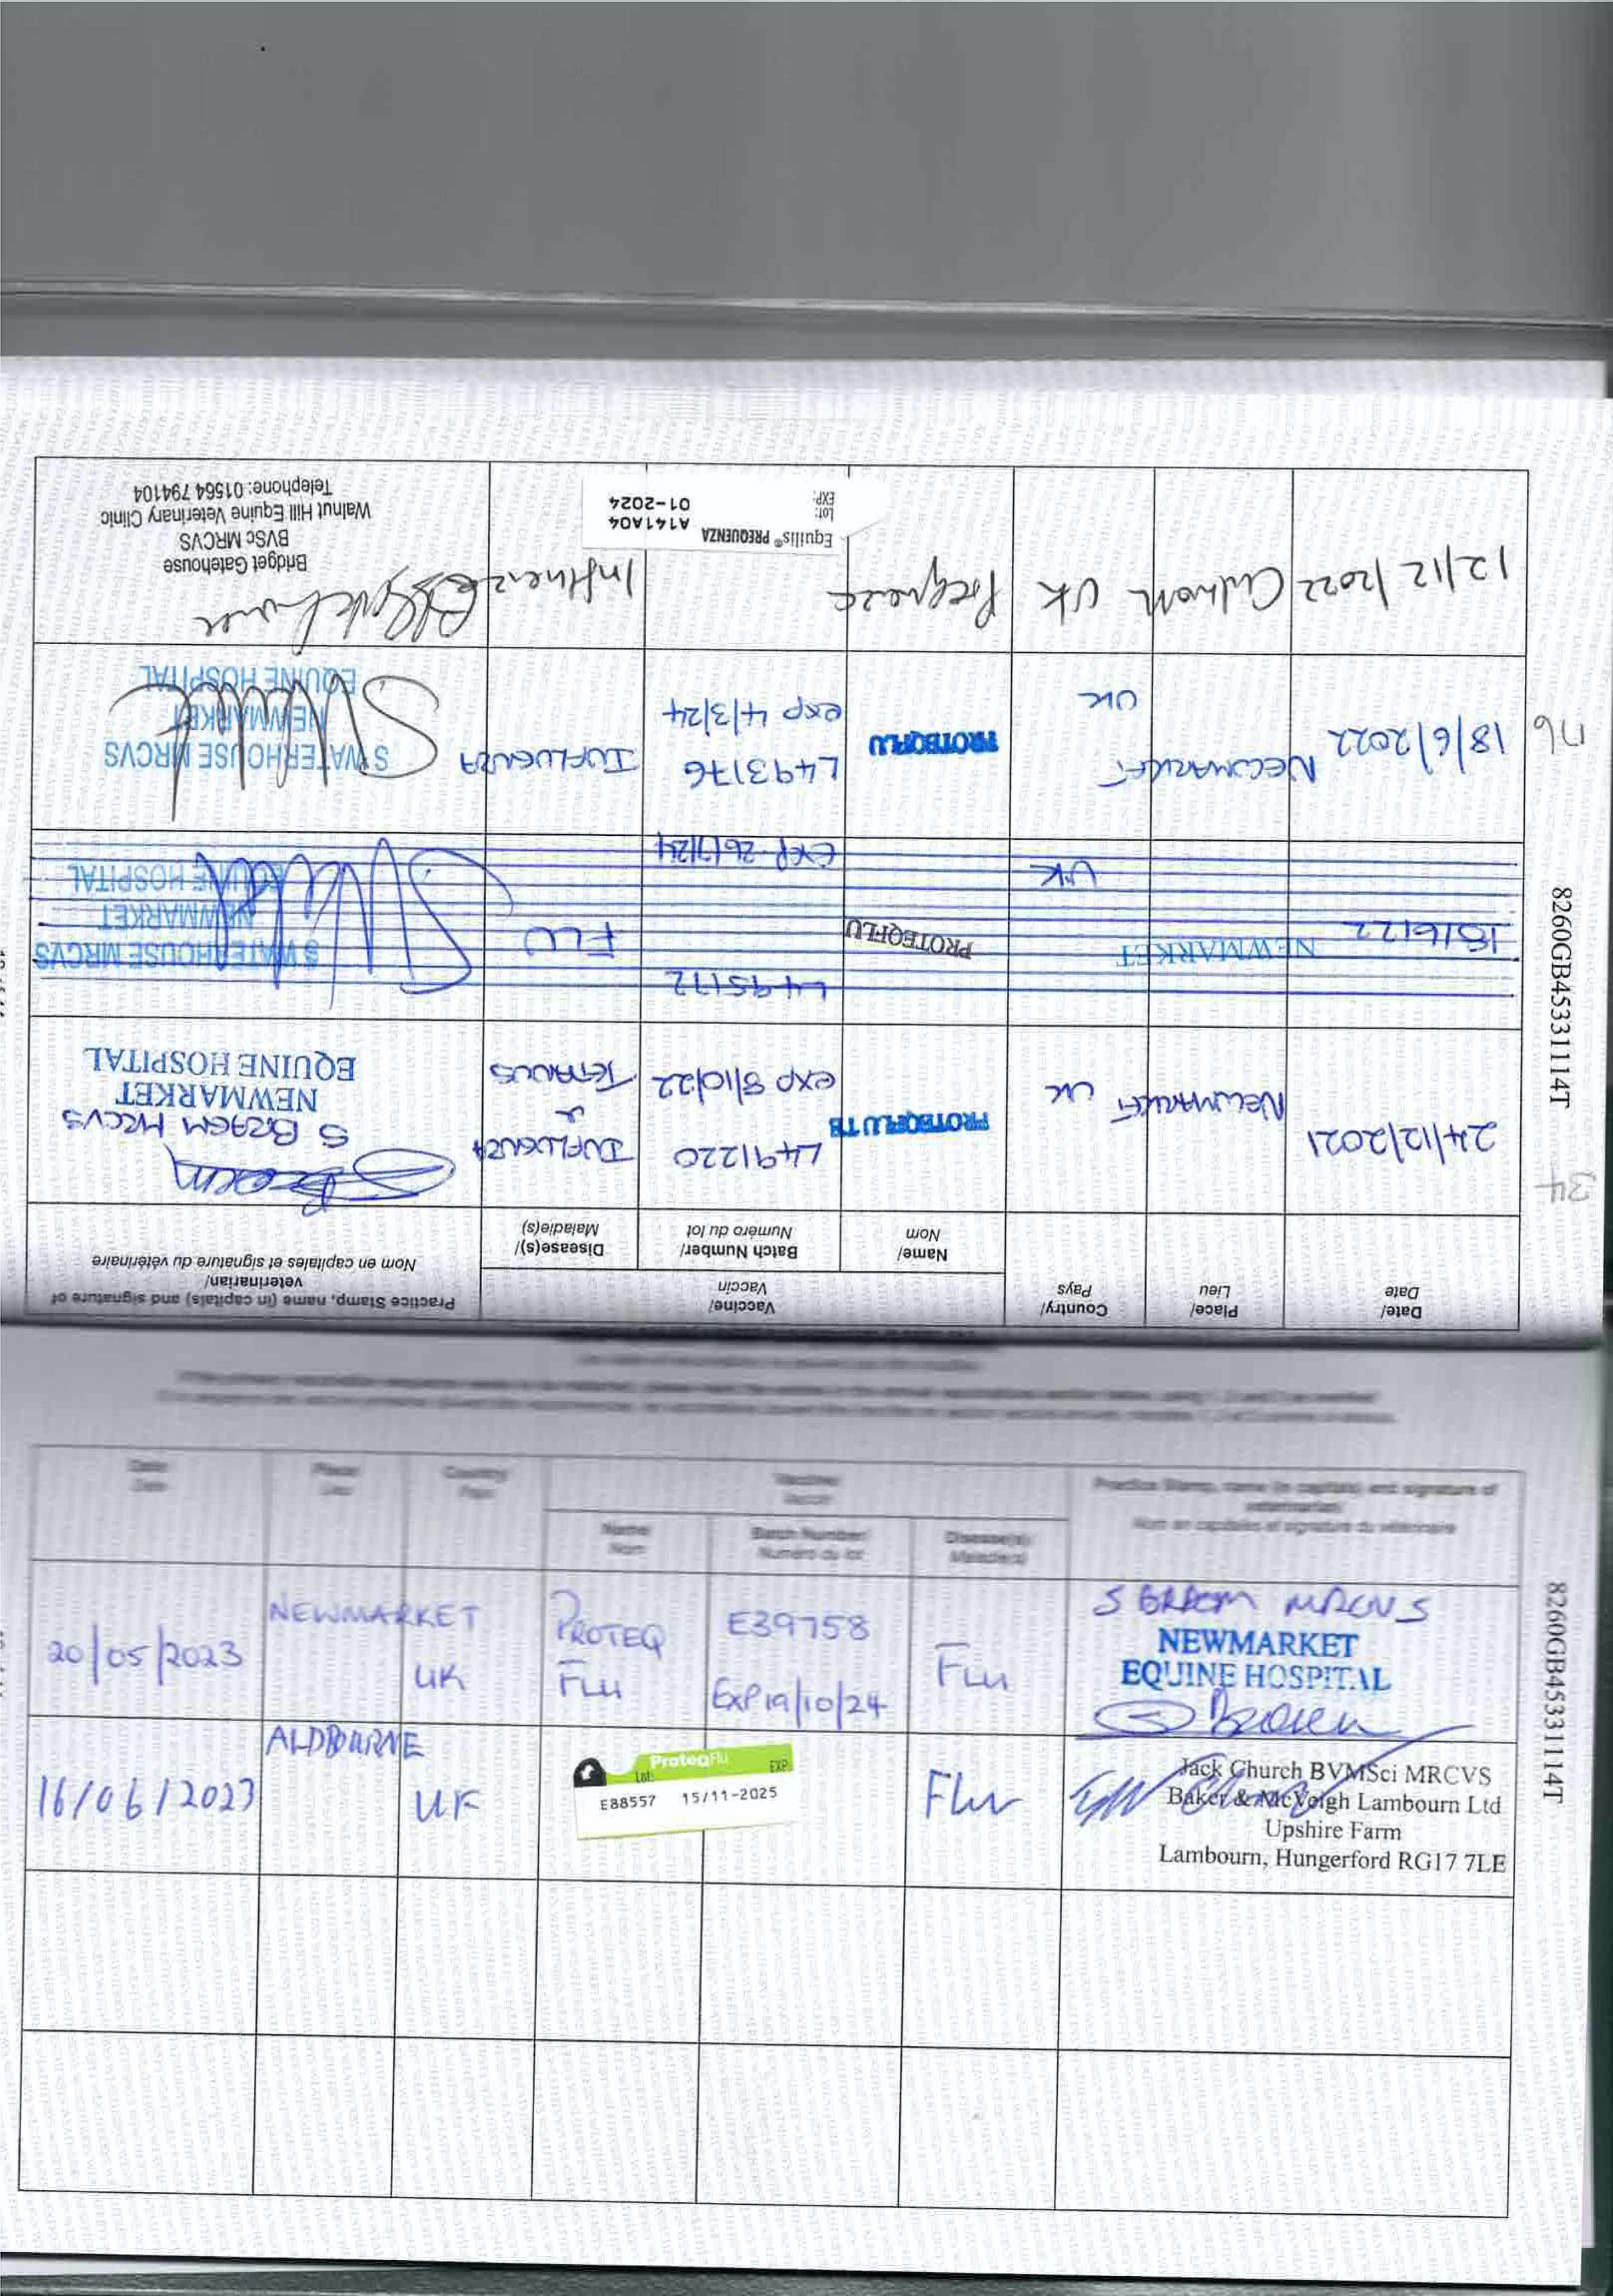 Date/ Date
Place/ Lieu
Country/ Pays
Vaccine/ Vaccin
Name/ Nom
Batch Number/ Numéro du lot
Disease(s)/ Maladie(s)
Practice Stamp, name (in capitals) and signature of veterinarian/
Nom en capitales et signature du vétérinaire
34
24/12/2021
NEWMARKET
UK
PROTEQFLU TE
L491220
exp 8/10/22
INFLUENZA
&
TETANUS
S BREEM MRCVS
NEWMARKET
EQUINE HOSPITAL
8260GB45331114T
NEWMARKET
UK
PROTEQFLU
L495172
FLU
S WATERHOUSE MRCVS
NEWMARKET
EQUINE HOSPITAL
176
18/6/2022
NEWMARKET
UK
PROTEQFLU
L493176
exp 4/3/24
INFLUENZA
S WATERHOUSE MRCVS
NEWMARKET
EQUINE HOSPITAL
12/12/2022
UK
Prequenza
Equilis® PREQUENZA
Lot: A141A04
EXP: 01-2024
Influenza
Bridget Gatehouse
BVSc MRCVS
Walnut Hill Equine Veterinary Clinic
Telephone: 01564 794104
Date/ Date
Place/ Lieu
Country/ Pays
Vaccine/ Vaccin
Name/ Nom
Batch Number/ Numéro du lot
Disease(s)/ Maladie(s)
Practice Stamp, name (in capitals) and signature of
veterinarian/
Nom en capitales et signature du vétérinaire
20/05/2023
NEWMARKET
UK
PROTEQ
FLU
E39758
EXP 19/10/24
FLU
S BREEM MRCVS
NEWMARKET
EQUINE HOSPITAL
8260GB45331114T
16/06/2023
ALDBOURNE
UK
ProteqFlu
Lot: EXP:
E88557 15/11-2025
Flu
Jack Church BVMSci MRCVS
Baker & McVeigh Lambourn Ltd
Upshire Farm
Lambourn, Hungerford RG17 7LE